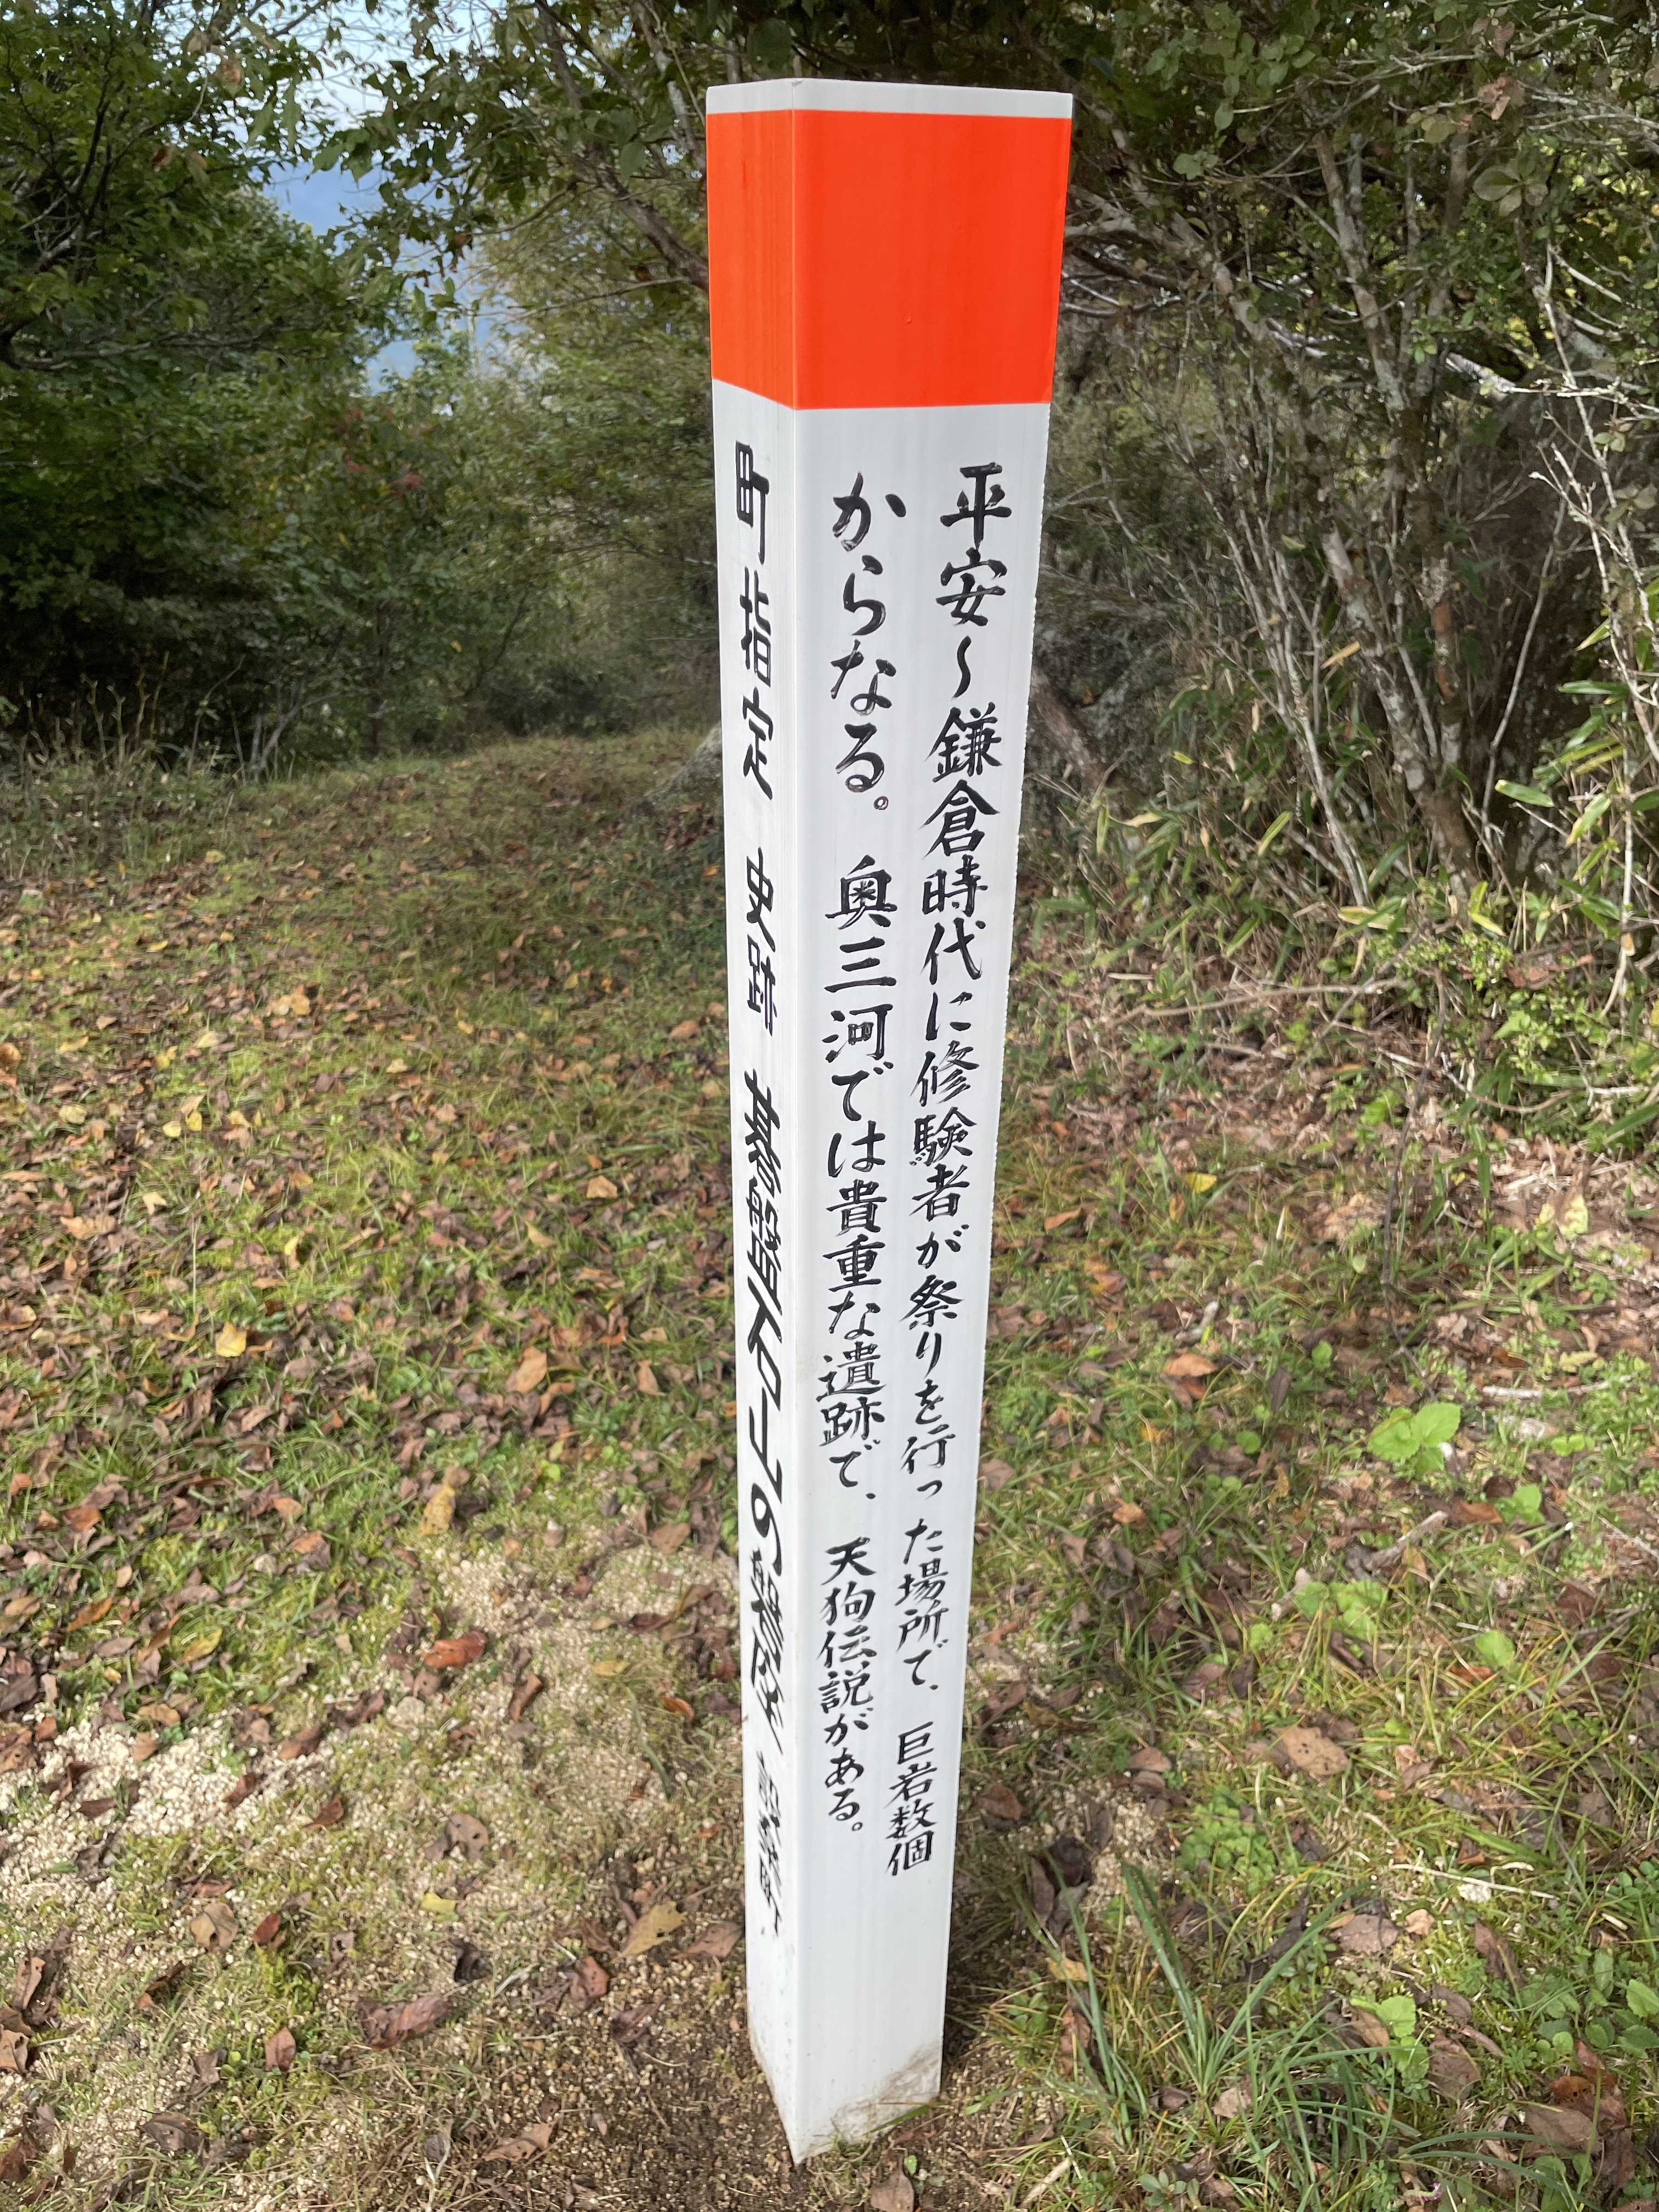 平安〜鎌倉時代に修験者が祭りを行った場所で、巨岩数個
からなる。奥三河では貴重な遺跡で、天狗伝説がある。
町指定 史跡 碁盤石山の磐座 設楽町